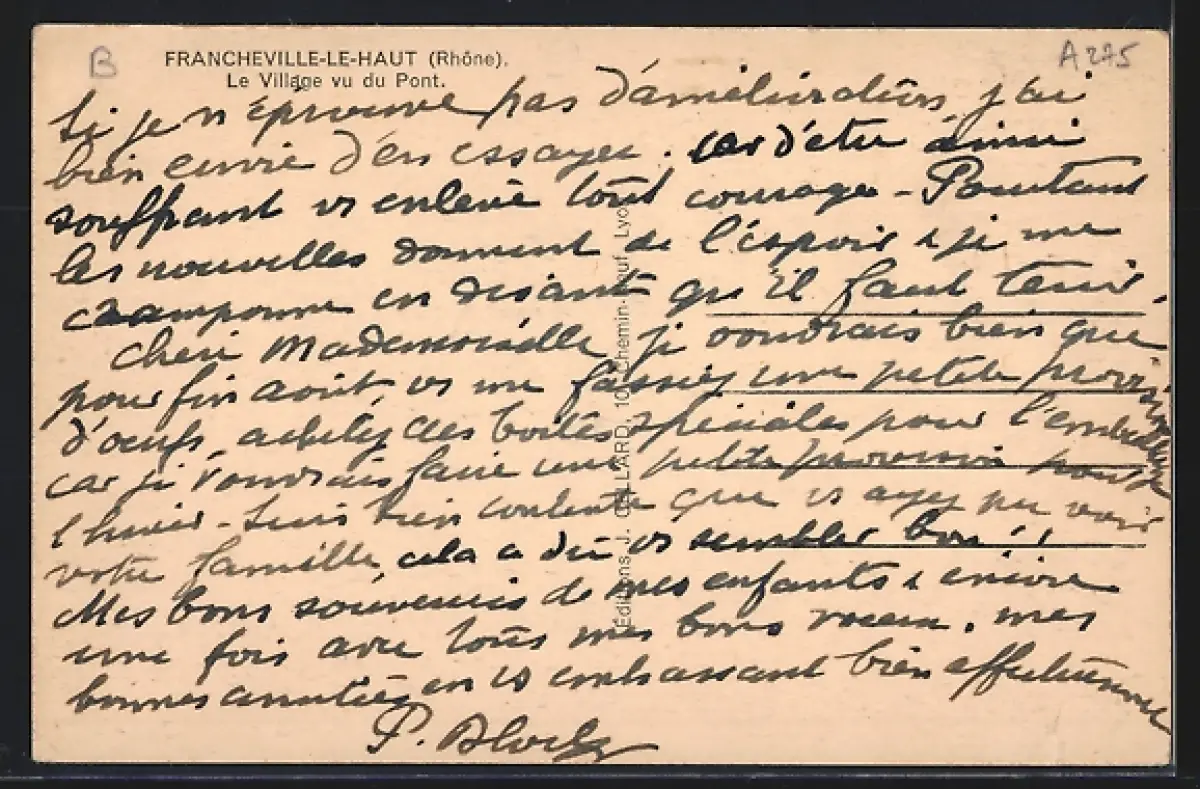 B
A 275
FRANCHEVILLE-LE-HAUT (Rhône).
Le Village vu du Pont.
Si je n'éprouve pas d'améliorations, j'ai
bien envie d'en essayer. car d'être ainsi
souffrant vs enlève tout courage - Pourtant
les nouvelles donnent de l'espoir & je me
cramponne en disant qu'il faut tenir.
Chère Mademoiselle, je voudrais bien que
pour fin août, vs me fassiez une petite provision
d'œufs, achetez des boîtes spéciales pour l'emballage
car je voudrais faire une petite provision pour
l'hiver - Suis bien contente que vs ayez pu voir
votre famille, cela a dû vs sembler bon!!
Mes bons souvenirs de mes enfants & encore
une fois avec tous mes bons vœux, mes
bonnes amitiés en vs embrassant bien affectueusement
P. Bloch
Editions J. CELLARD, 10, Chemin-Neuf, Lyon